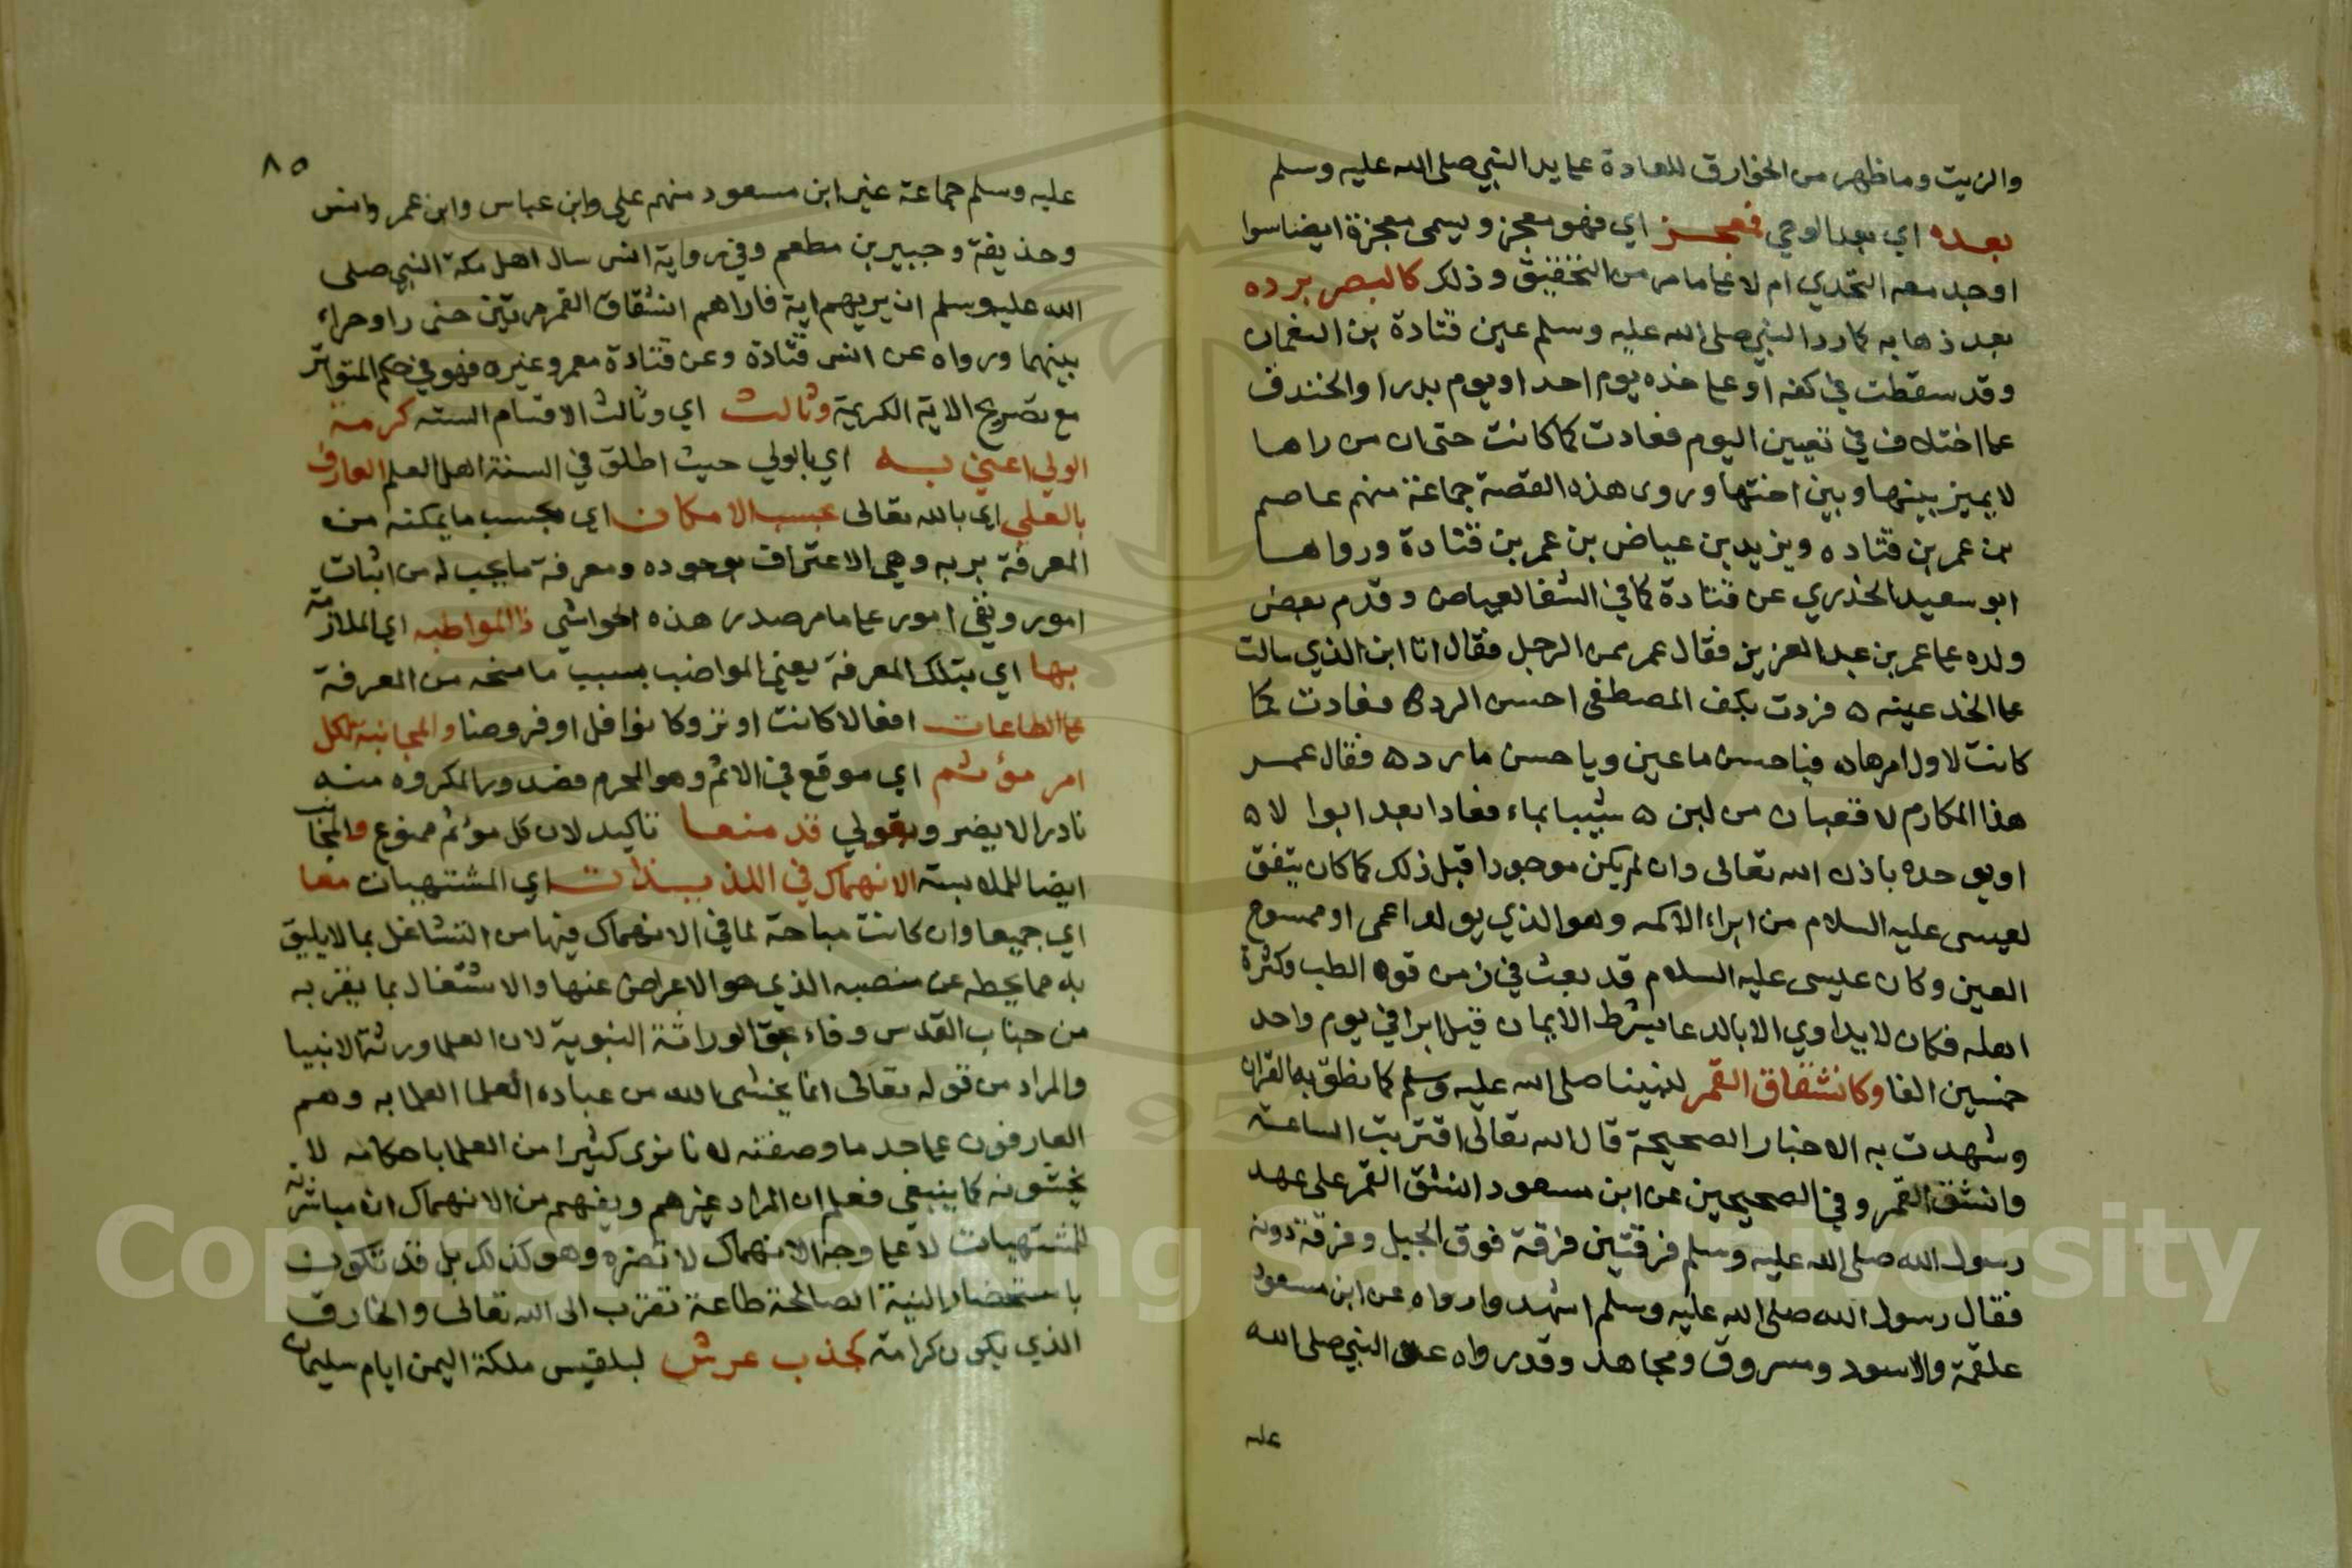 والزيت وما ظهر من الخوارق للعادة علي يد النبي صلي الله عليه وسلم
بعده اي بعد الوحي فمعجز اي فهو معجز ويسمي معجزة ايضا سوا
اوجد معه التحدي ام لا علي ما مر من التحقيق وذلك كالبصر برده
بعد ذهابه كما رد النبي صلي الله عليه وسلم عين قتادة بن النعمان
وقد سقطت في كفه او علي خده يوم احد او يوم بدر او الخندق
علي اختلاف في تعيين اليوم فعادت كما كانت حتي ان من راها
لا يميز بينها وبين اختها وروي هذه القصة جماعة منهم عاصم
بن عمر بن قتاده ويزيد بن عياض بن عمر بن قتادة ورواها
ابو سعيد الخدري عن قتادة كما في الشفا لعياض وقدم بعض
ولده علي عمر بن عبد العزيز فقال عمر ممن الرجل فقال انا ابن الذي سالت
علي الخد عينه ه فردت بكف المصطفي احسن الرد ه فعادت كما
كانت لاول امرها ه فيا حسن ما عين ويا حسن ما رد ه فقال عمر
هذا المكارم لا قعبان من لبن ه شيبا بماء فعادا بعد ابوالا ه
او يوجده باذن الله تعالى وان لم يكن موجودا قبل ذلك كما كان يتفق
لعيسى عليه السلام من ابراء الاكمه وهو الذي يولد اعمى او ممسوح
العين وكان عيسى عليه السلام قد بعث في زمن قوة الطب وكثرة
اهله فكان لا يداوي الا بالدعا بشرط الايمان قيل ابرا في يوم واحد
خمسين الفا وكانشقاق القمر لنبينا صلى الله عليه وسلم كما نطق به القران
وشهدت به الاخبار الصحيحة قال الله تعالى اقتربت الساعة
وانشق القمر وفي الصحيحين عن ابن مسعود انشق القمر على عهد
رسول الله صلى الله عليه وسلم فرقتين فرقة فوق الجبل وفرقة دونه
فقال رسول الله صلى الله عليه وسلم اشهدوا رواه عن ابن مسعود
علقمة والاسود ومسروق ومجاهد وقد رواه عن النبي صلى الله
عليه
٨٥
عليه وسلم جماعة غير ابن مسعود منهم علي وابن عباس وابن عمر وانس
وحذيفة وجبير بن مطعم وفي رواية انس سال اهل مكة النبي صلى
الله عليه وسلم ان يريهم اية فاراهم انشقاق القمر مرتين حتى راو حراء
بينهما ورواه عن انس قتادة وعن قتادة معمر وغيره فهو في حكم المتواتر
مع تصريح الاية الكريمة وثالث اي وثالث الاقسام الستة كرمة
الولي اعني به اي بالولي حيث اطلق في السنة اهل العلم العارف
بالعلي اي بالله تعالى بحسب الامكان اي بحسب ما يمكنه من
المعرفة بربه وهي الاعتراف بوجوده ومعرفة ما يجب له من اثبات
امور ونفي امور علي ما مر صدر هذه الحواشي ذا المواطبه اي الملازمة
بها اي بتلك المعرفة يعني المواضب بسبب ما منحه من المعرفة
علي الطاعات افعالا كانت او تروكا نوافل او فروضا والمجانبة لكل
امر مؤثم اي موقع في الاثم وهو المحرم فصدور المكروه منه
نادرا لا يضر وبقولي قد منعا تاكيد لان كل مؤثم ممنوع والمجانب
ايضا لملابسة الانهماك في اللذيذات اي المشتهيات معا
اي جميعا وان كانت مباحة لما في الانهماك فيها من التشاغل بما لا يليق
به مما يحطه عن منصبه الذي هو الاعراض عنها والاشتغال بما يقربه
من جناب القدس وفاء بحق الوراثة النبوية لان العلما ورثة الانبيا
والمراد من قوله تعالى انما يخشى الله من عباده العلما العلما به وهم
العارفون علي حد ما وصفته لانا نرى كثيرا من العلما باحكامه لا
يخشونه كما ينبغي فعلم ان المراد غيرهم ويفهم من الانهماك ان مباشرته
للمشتهيات لا علي وجه الانهماك لا تضره وهو كذلك بل قد تكون
باستحضار النية الصالحة طاعة تقرب الى الله تعالى والخارق
الذي يكون كرامة كجذب عرش لبلقيس ملكة اليمن ايام سليمان
Copyright © King Saud University